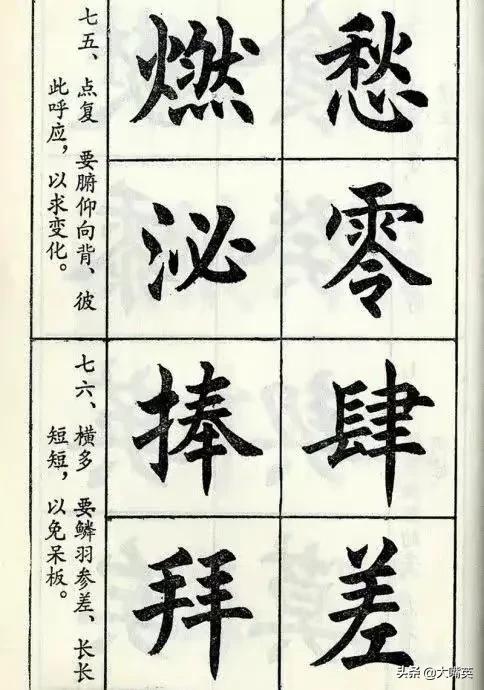 七五、点复 要腑仰向背、彼
此呼应，以求变化。
愁
零
燃
泌
七六、横多 要鳞羽参差、长长
短短，以免呆板。
肆
差
捧
拜
头条 @大嘴英